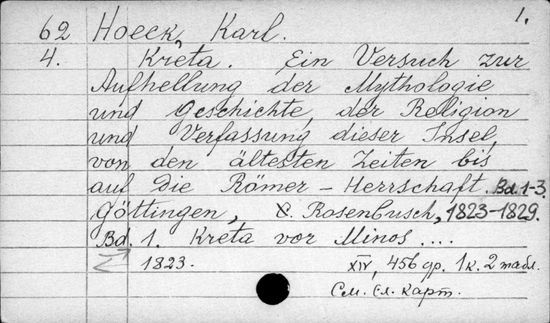 1.
62 Hoeck, Karl.
4. Kreta. Ein Versuch zur
Aufhellung der Mythologie
und Geschichte, der Religion
und Verfassung dieser Insel,
von den ältesten Zeiten bis
auf die Römer-Herrschaft. Bd. 1-3.
Göttingen, C. Rosenbusch, 1823-1829.
Bd. 1. Kreta vor Minos....
1823. XIV, 456 gp. 1 к. 2 табл.
См. сл. карт.